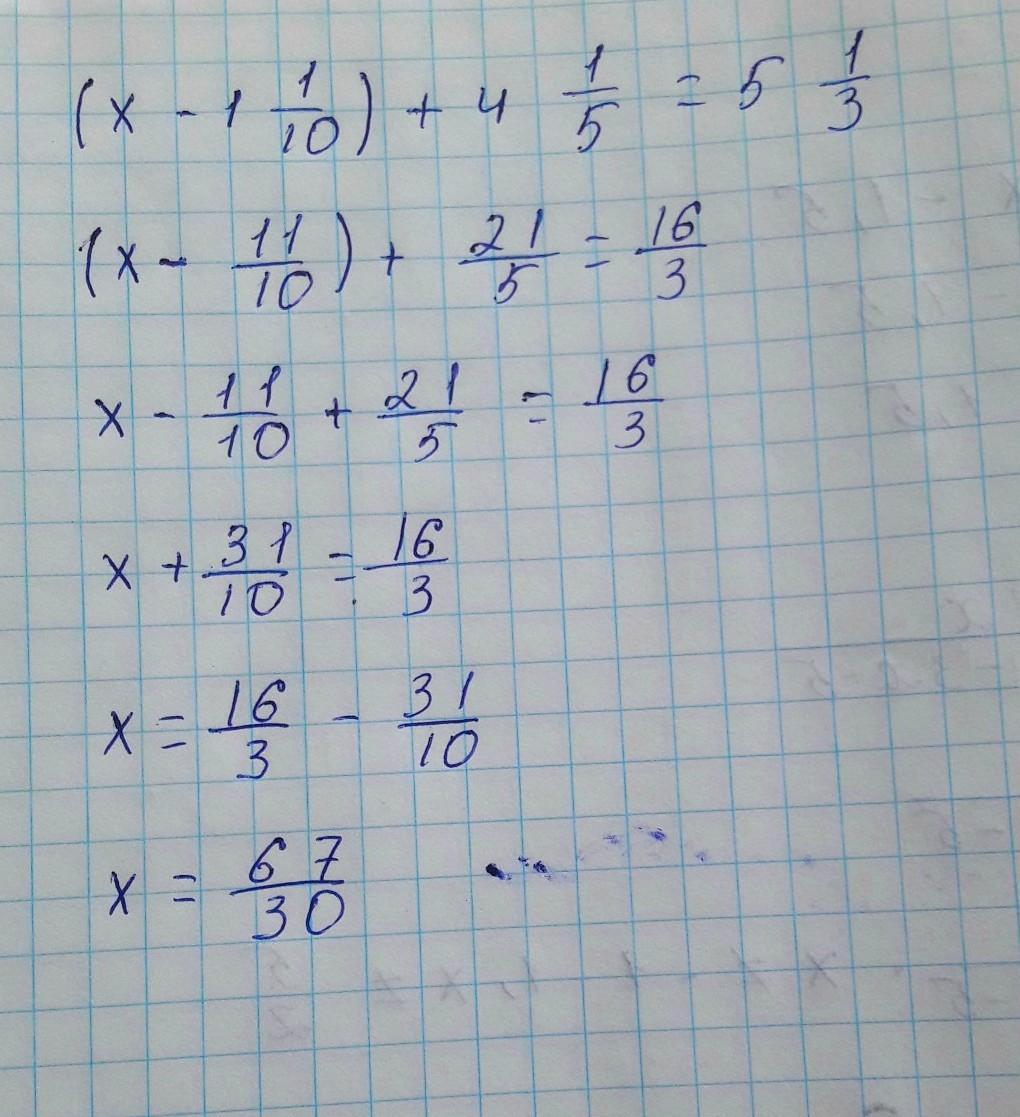 (x - 1 1/10) + 4 1/5 = 5 1/3
(x - 11/10) + 21/5 = 16/3
x - 11/10 + 21/5 = 16/3
x + 31/10 = 16/3
x = 16/3 - 31/10
x = 67/30